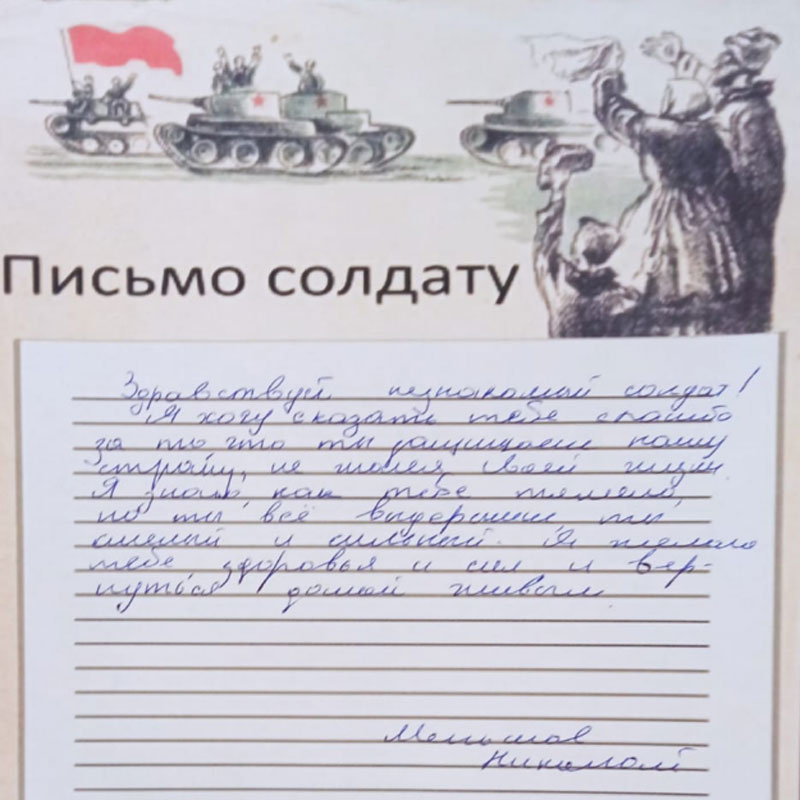 Письмо солдату
Здравствуй незнакомый солдат!
Я хочу сказать тебе спасибо
за то что ты защищаеш нашу
страну, не жалея своей жизни.
Я знаю, как тебе тяжело,
но ты всё выдержиш ты
смелый и сильный. Я желаю
тебе здоровья и сил и вер-
нуться домой живым
Меньшов
Николай